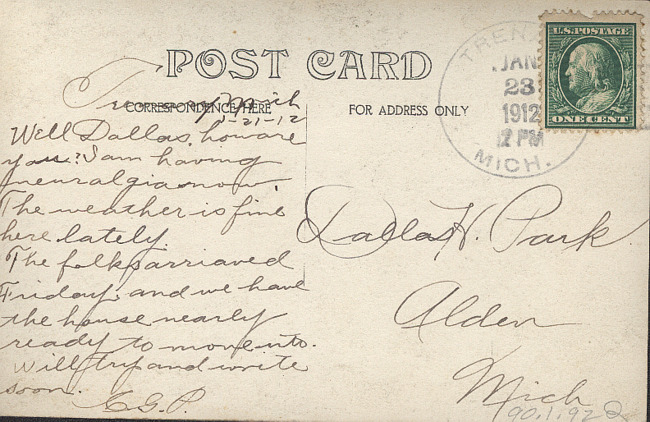 POST CARD
CORRESPONDENCE HERE
FOR ADDRESS ONLY
Mich
1-21-12
Well Dallas, how are
you? I am having
neuralgia now.
The weather is fine
here lately
The folks arriaved
Friday, and we have
the house nearly
ready to move into.
Will try and write
soon.
E.G.P.
TREN
JAN
23
1912
2 PM
MICH.
U.S. POSTAGE
ONE CENT
Dallas H. Park
Alden
Mich
90.1.92